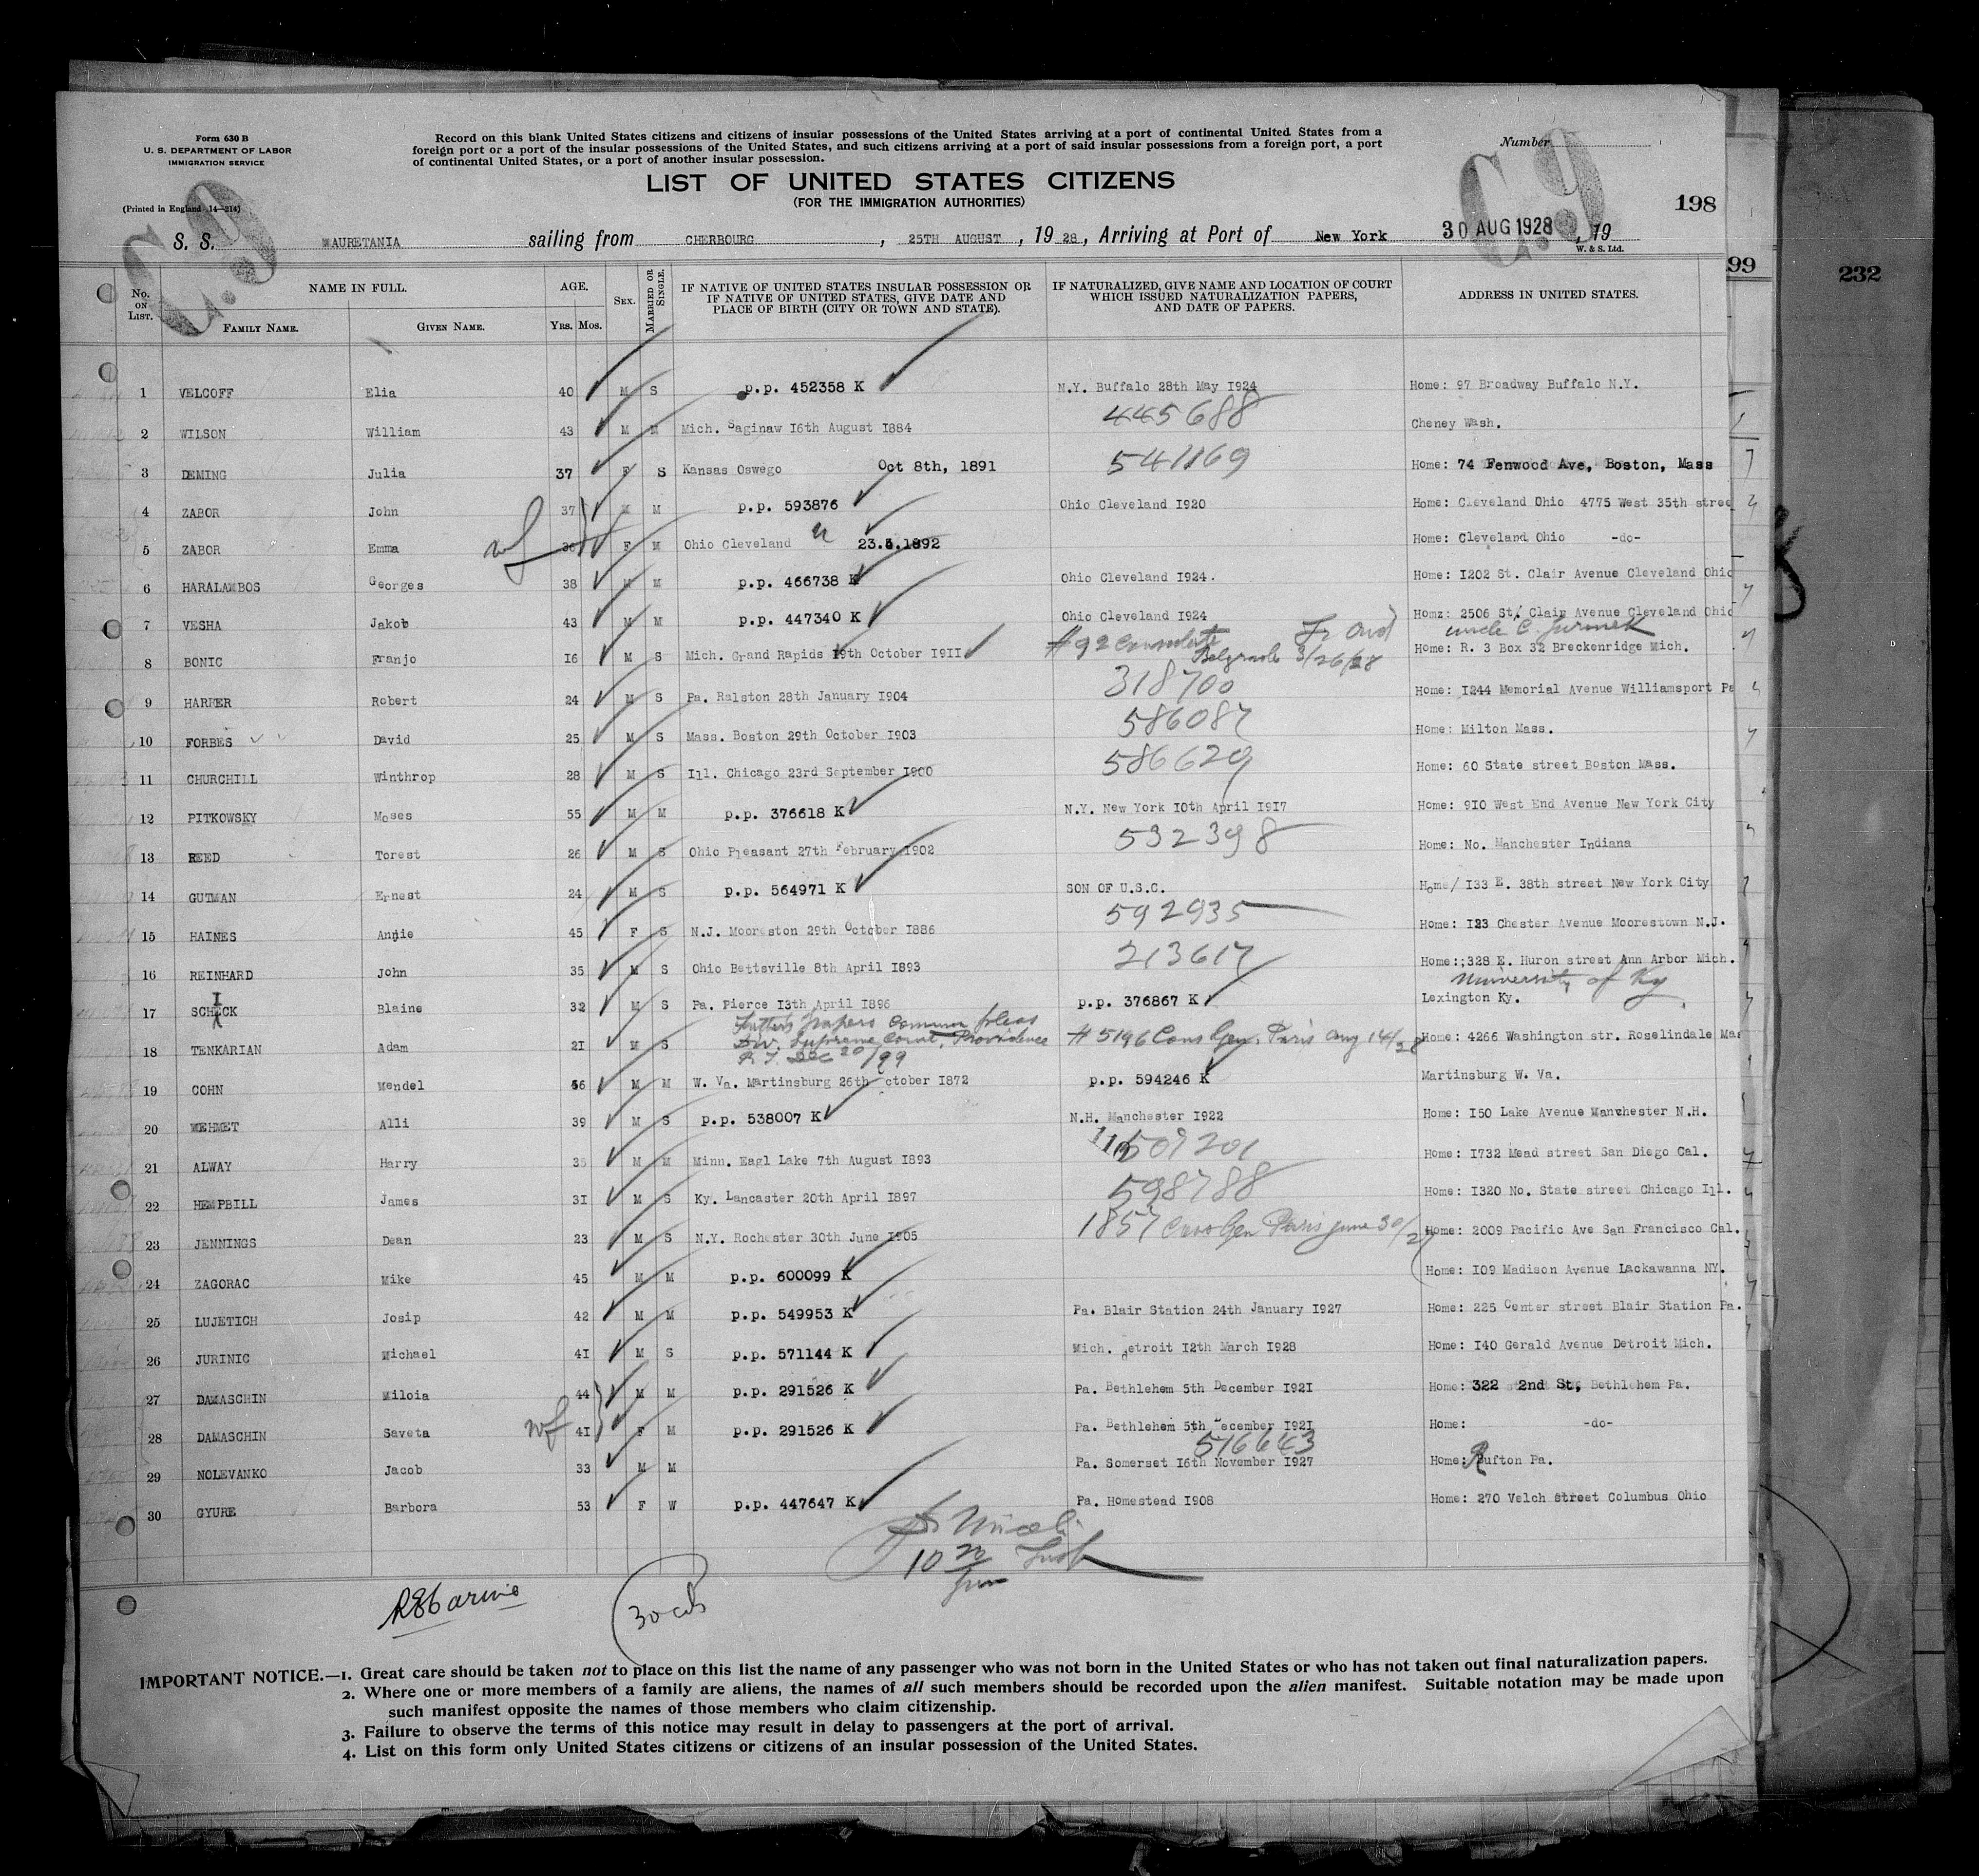 Form 630 B
U. S. DEPARTMENT OF LABOR
IMMIGRATION SERVICE
(Printed in England 14—214)
Record on this blank United States citizens and citizens of insular possessions of the United States arriving at a port of continental United States from a
foreign port or a port of the insular possessions of the United States, and such citizens arriving at a port of said insular possessions from a foreign port, a port
of continental United States, or a port of another insular possession.
Number
LIST OF UNITED STATES CITIZENS
(FOR THE IMMIGRATION AUTHORITIES)
C.9
C.9
198
S. S. MAURETANIA sailing from CHERBOURG, 25TH AUGUST, 19 28, Arriving at Port of New York 30 AUG 1928, 19
W. & S. Ltd.
99
232
No. ON LIST. NAME IN FULL. FAMILY NAME. GIVEN NAME. AGE. YRS. MOS. SEX. MARRIED OR SINGLE. IF NATIVE OF UNITED STATES INSULAR POSSESSION OR IF NATIVE OF UNITED STATES, GIVE DATE AND PLACE OF BIRTH (CITY OR TOWN AND STATE). IF NATURALIZED, GIVE NAME AND LOCATION OF COURT WHICH ISSUED NATURALIZATION PAPERS, AND DATE OF PAPERS. ADDRESS IN UNITED STATES.
1 VELCOFF Elia 40 M S p.p. 452358 K N.Y. Buffalo 28th May I924 Home: 97 Broadway Buffalo N.Y.
2 WILSON William 43 M M Mich. Saginaw I6th August I884 445688 Cheney Wash.
3 DEMING Julia 37 F S Kansas Oswego Oct 8th, 1891 541169 Home: 74 Fenwood Ave, Boston, Mass
4 ZABOR John 37 M M p.p. 593876 Ohio Cleveland I920 Home: Cleveland Ohio 4775 West 35th stree
5 ZABOR Emma wf 36 F M Ohio Cleveland 23.4.1892 Home: Cleveland Ohio -do-
6 HARALAMBOS Georges 38 M M p.p. 466738 K Ohio Cleveland I924. Home: I202 St. Clair Avenue Cleveland Ohio
7 VESHA Jakob 43 M M p.p. 447340 K Ohio Cleveland I924 Homz: 2506 St. Clair Avenue Cleveland Ohio
8 BONIC Franjo I6 M S Mich. Grand Rapids 19th October I9II #92 Consulate Belgrade 3/26/28 uncle C. Home: R. 3 Box 32 Breckenridge Mich.
9 HARPER Robert 24 M S Pa. Ralston 28th January I904 318700 Home: I244 Memorial Avenue Williamsport Pa
10 FORBES David 25 M S Mass. Boston 29th October I903 586087 Home: Milton Mass.
11 CHURCHILL Winthrop 28 M S Ill. Chicago 23rd September I900 586629 Home: 60 State street Boston Mass.
12 PITKOWSKY Moses 55 M M p.p. 376618 K N.Y. New York I0th April I9I7 Home: 9I0 West End Avenue New York City
13 REED Torest 26 M S Ohio Pleasant 27th February I902 532398 Home: No. Manchester Indiana
14 GUTMAN Ernest 24 M S p.p. 564971 K SON OF U.S.C. Home/ I33 E. 38th street New York City
15 HAINES Annie 45 F S N.J. Mooreston 29th October I886 592935 Home: I23 Chester Avenue Moorestown N.J.
16 REINHARD John 35 M S Ohio Bettsville 8th April I893 213617 Home:;328 E. Huron street Ann Arbor Mich.
17 SCHICK Blaine 32 M S Pa. Pierce I3th April I896 p.p. 376867 K University of Ky Lexington Ky.
18 TENKARIAN Adam 2I M S Father's papers Common pleas Div. Supreme Court, Providence R.I. Dec 20/99 #5196 Cons Gen. Paris Aug 14/28 Home: 4266 Washington str. Roselindale Mas
19 COHN Mendel 56 M M W. Va. Martinsburg 26th ctober I872 p.p. 594246 K Martinsburg W. Va.
20 MEHMET Alli 39 M S p.p. 538007 K N.H. Manchester I922 Home: I50 Lake Avenue Manchester N.H.
21 ALWAY Harry 35 M M Minn. Eagl Lake 7th August I893 509201 Home: I732 Mead street San Diego Cal.
22 HEMPBILL James 3I M S Ky. Lancaster 20th April I897 598788 Home: I320 No. State street Chicago Ill.
23 JENNINGS Dean 23 M S N.Y. Rochester 30th June I905 1857 Cons Gen Paris June 30/27 Home: 2009 Pacific Ave San Francisco Cal.
24 ZAGORAC Mike 45 M M p.p. 600099 K Home: I09 Madison Avenue Lackawanna NY.
25 LUJETICH Josip 42 M M p.p. 549953 K Pa. Blair Station 24th January I927 Home: 225 Center street Blair Station Pa.
26 JURINIC Michael 4I M S p.p. 571144 K Mich. Detroit I2th March I928 Home: I40 Gerald Avenue Detroit Mich.
27 DAMASCHIN Miloia 44 M M p.p. 291526 K Pa. Bethlehem 5th December I92I Home: 322 2nd St, Bethlehem Pa.
28 DAMASCHIN Saveta wf 4I F M p.p. 291526 K Pa. Bethlehem 5th December I92I Home: -do-
29 NOLEVANKO Jacob 33 M M 516643 Pa. Somerset I6th November I927 Home: Rufton Pa.
30 GYURE Barbora 53 F W p.p. 447647 K Pa. Homestead I908 Home: 270 Velch street Columbus Ohio
10 20
30 cds
IMPORTANT NOTICE.—1. Great care should be taken not to place on this list the name of any passenger who was not born in the United States or who has not taken out final naturalization papers.
2. Where one or more members of a family are aliens, the names of all such members should be recorded upon the alien manifest. Suitable notation may be made upon
such manifest opposite the names of those members who claim citizenship.
3. Failure to observe the terms of this notice may result in delay to passengers at the port of arrival.
4. List on this form only United States citizens or citizens of an insular possession of the United States.